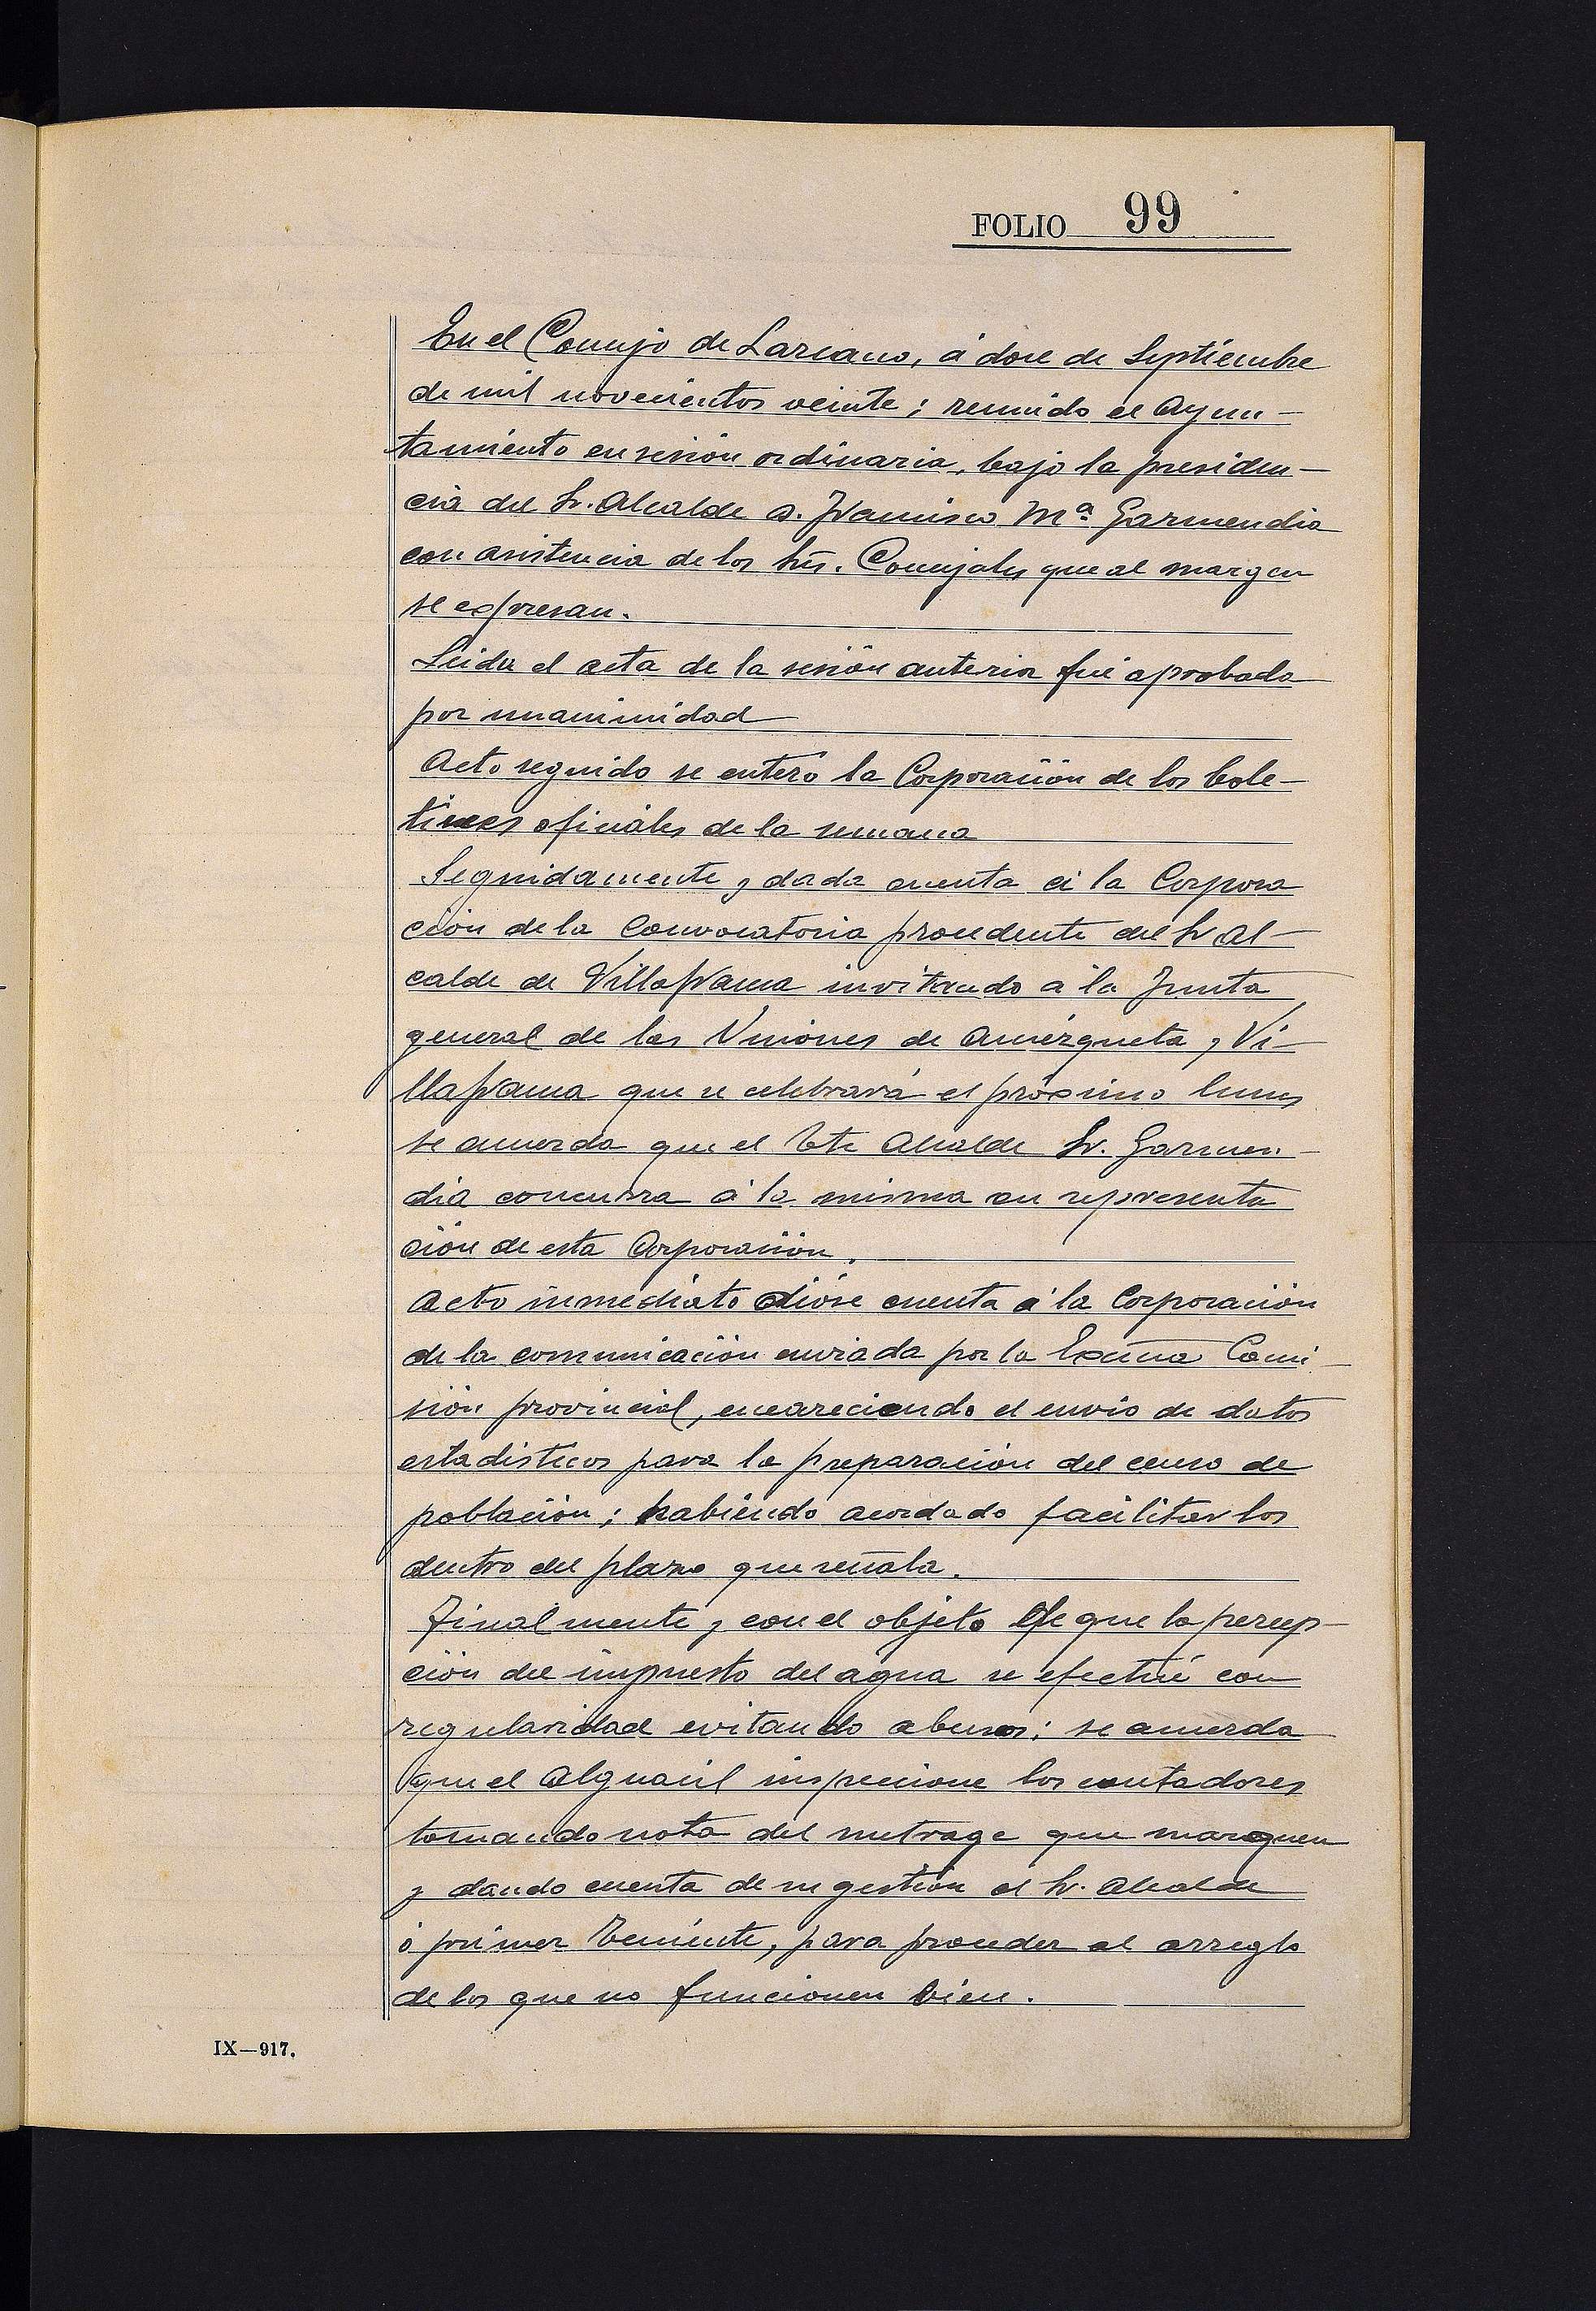 FOLIO 99
En el Concejo de Lazcano, á doce de Septiembre
de mil novecientos veinte; reunido el Ayun-
tamiento en sesión ordinaria, bajo la presiden-
cia del Sr. Alcalde D. Francisco Mª Garmendia
con asistencia de los Srs. Concejales que al margen
se expresan.
Leida el acta de la sesión anterior fué aprobada
por unanimidad
Acto seguido se enteró la Corporación de los bole-
tines oficiales de la semana
Seguidamente y dada cuenta á la Corpora
ción de la Convocatoria procedente del Sr Al-
calde de Villafranca invitando á la Junta
general de las Uniones de Amézqueta y Vi-
llafranca que se celebrará el próximo lunes
se acuerda que el Tte Alcalde Sr. Garmen-
dia concurra á la misma en representa
ción de esta Corporación.
Acto inmediato dióse cuenta á la Corporación
de la comunicación enviada por la Excma Comi-
sión provincial, encareciendo el envio de datos
estadisticos para la preparación del censo de
población; habiendo acordado facilitar los
dentro del plazo que señala.
Finalmente y con el objeto de que la percep-
ción del impuesto del agua se efectúe con
regularidad evitando abusos; se acuerda
que el Alguacil inspeccione los contadores
tomando nota del metrage que marquen
y dando cuenta de su gestión al Sr. Alcalde
ó primer Teniente, para proceder al arreglo
de los que no funcionen bien.
IX—917.